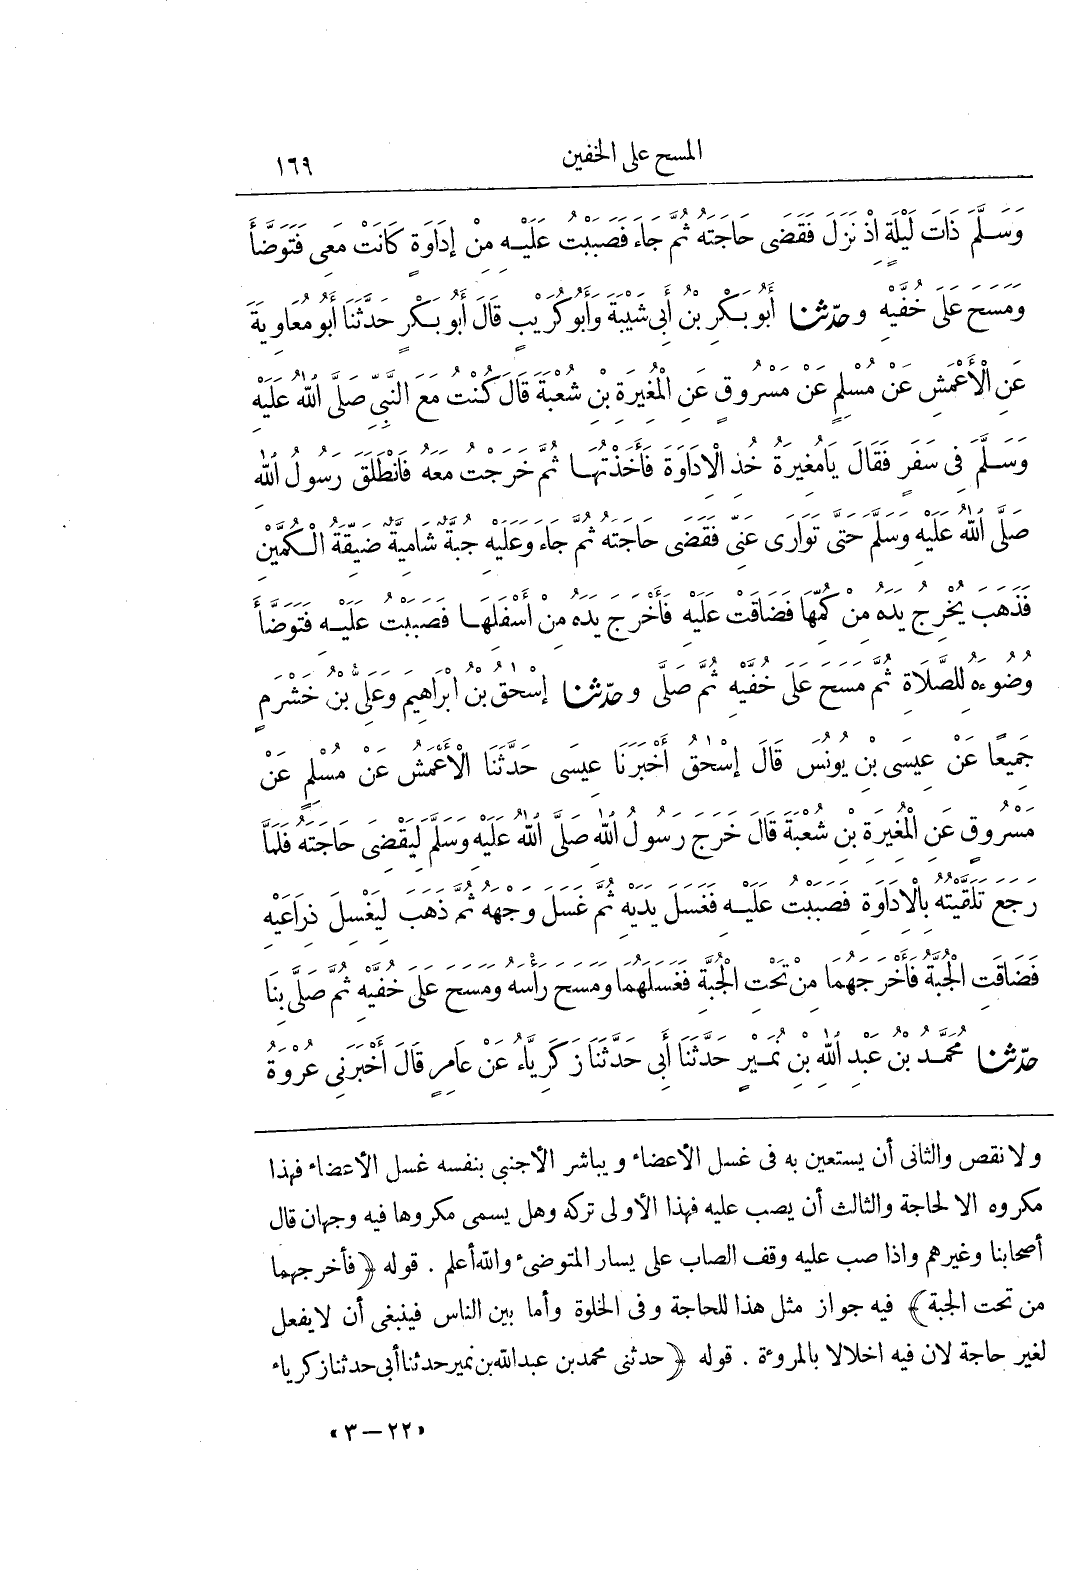 المسح على الخفين ١٦٩
وَسَلَّمَ ذَاتَ لَيْلَةٍ إِذْ نَزَلَ فَقَضَى حَاجَتَهُ ثُمَّ جَاءَ فَصَبَبْتُ عَلَيْهِ مِنْ إِدَاوَةٍ كَانَتْ مَعِى فَتَوَضَّأَ
وَمَسَحَ عَلَى خُفَّيْهِ وحدّثنا أَبُو بَكْرِ بْنُ أَبِى شَيْبَةَ وَأَبُو كُرَيْبٍ قَالَ أَبُو بَكْرٍ حَدَّثَنَا أَبُو مُعَاوِيَةَ
عَنِ الْأَعْمَشِ عَنْ مُسْلِمٍ عَنْ مَسْرُوقٍ عَنِ الْمُغِيرَةِ بْنِ شُعْبَةَ قَالَ كُنْتُ مَعَ النَّبِىِّ صَلَّى اللهُ عَلَيْهِ
وَسَلَّمَ فِى سَفَرٍ فَقَالَ يَامُغِيرَةُ خُذِ الْإِدَاوَةَ فَأَخَذْتُهَا ثُمَّ خَرَجْتُ مَعَهُ فَانْطَلَقَ رَسُولُ اللهِ
صَلَّى اللهُ عَلَيْهِ وَسَلَّمَ حَتَّى تَوَارَى عَنِّى فَقَضَى حَاجَتَهُ ثُمَّ جَاءَ وَعَلَيْهِ جُبَّةٌ شَامِيَةٌ ضَيِّقَةُ الْكُمَّيْنِ
فَذَهَبَ يُخْرِجُ يَدَهُ مِنْ كُمِّهَا فَضَاقَتْ عَلَيْهِ فَأَخْرَجَ يَدَهُ مِنْ أَسْفَلِهَا فَصَبَبْتُ عَلَيْهِ فَتَوَضَّأَ
وُضُوءَهُ لِلصَّلَاةِ ثُمَّ مَسَحَ عَلَى خُفَّيْهِ ثُمَّ صَلَّى وحدّثنا إِسْحٰقُ بْنُ إِبْرَاهِيمَ وَعَلِىُّ بْنُ خَشْرَمٍ
جَمِيعًا عَنْ عِيسَى بْنِ يُونُسَ قَالَ إِسْحٰقُ أَخْبَرَنَا عِيسَى حَدَّثَنَا الْأَعْمَشُ عَنْ مُسْلِمٍ عَنْ
مَسْرُوقٍ عَنِ الْمُغِيرَةِ بْنِ شُعْبَةَ قَالَ خَرَجَ رَسُولُ اللهِ صَلَّى اللهُ عَلَيْهِ وَسَلَّمَ لِيَقْضِىَ حَاجَتَهُ فَلَمَّا
رَجَعَ تَلَقَّيْتُهُ بِالْإِدَاوَةِ فَصَبَبْتُ عَلَيْهِ فَغَسَلَ يَدَيْهِ ثُمَّ غَسَلَ وَجْهَهُ ثُمَّ ذَهَبَ لِيَغْسِلَ ذِرَاعَيْهِ
فَضَاقَتِ الْجُبَّةُ فَأَخْرَجَهُمَا مِنْ تَحْتِ الْجُبَّةِ فَغَسَلَهُمَا وَمَسَحَ رَأْسَهُ وَمَسَحَ عَلَى خُفَّيْهِ ثُمَّ صَلَّى بِنَا
حدّثنا مُحَمَّدُ بْنُ عَبْدِ اللهِ بْنِ نُمَيْرٍ حَدَّثَنَا أَبِى حَدَّثَنَا زَكَرِيَّاءُ عَنْ عَامِرٍ قَالَ أَخْبَرَنِى عُرْوَةُ
ولا نقص والثانى أن يستعين به فى غسل الأعضاء ويباشر الأجنبى بنفسه غسل الأعضاء فهذا
مكروه الا لحاجة والثالث أن يصب عليه فهذا الأولى تركه وهل يسمى مكروها فيه وجهان قال
أصحابنا وغيرهم واذا صب عليه وقف الصاب على يسار المتوضئ والله أعلم . قوله ﴿فأخرجهما
من تحت الجبة﴾ فيه جواز مثل هذا للحاجة وفى الخلوة وأما بين الناس فينبغى أن لايفعل
لغير حاجة لان فيه اخلالا بالمروءة . قوله ﴿حدثنى محمد بن عبد الله بن نمير حدثنا أبى حدثنا زكرياء
«٢٢ — ٣»